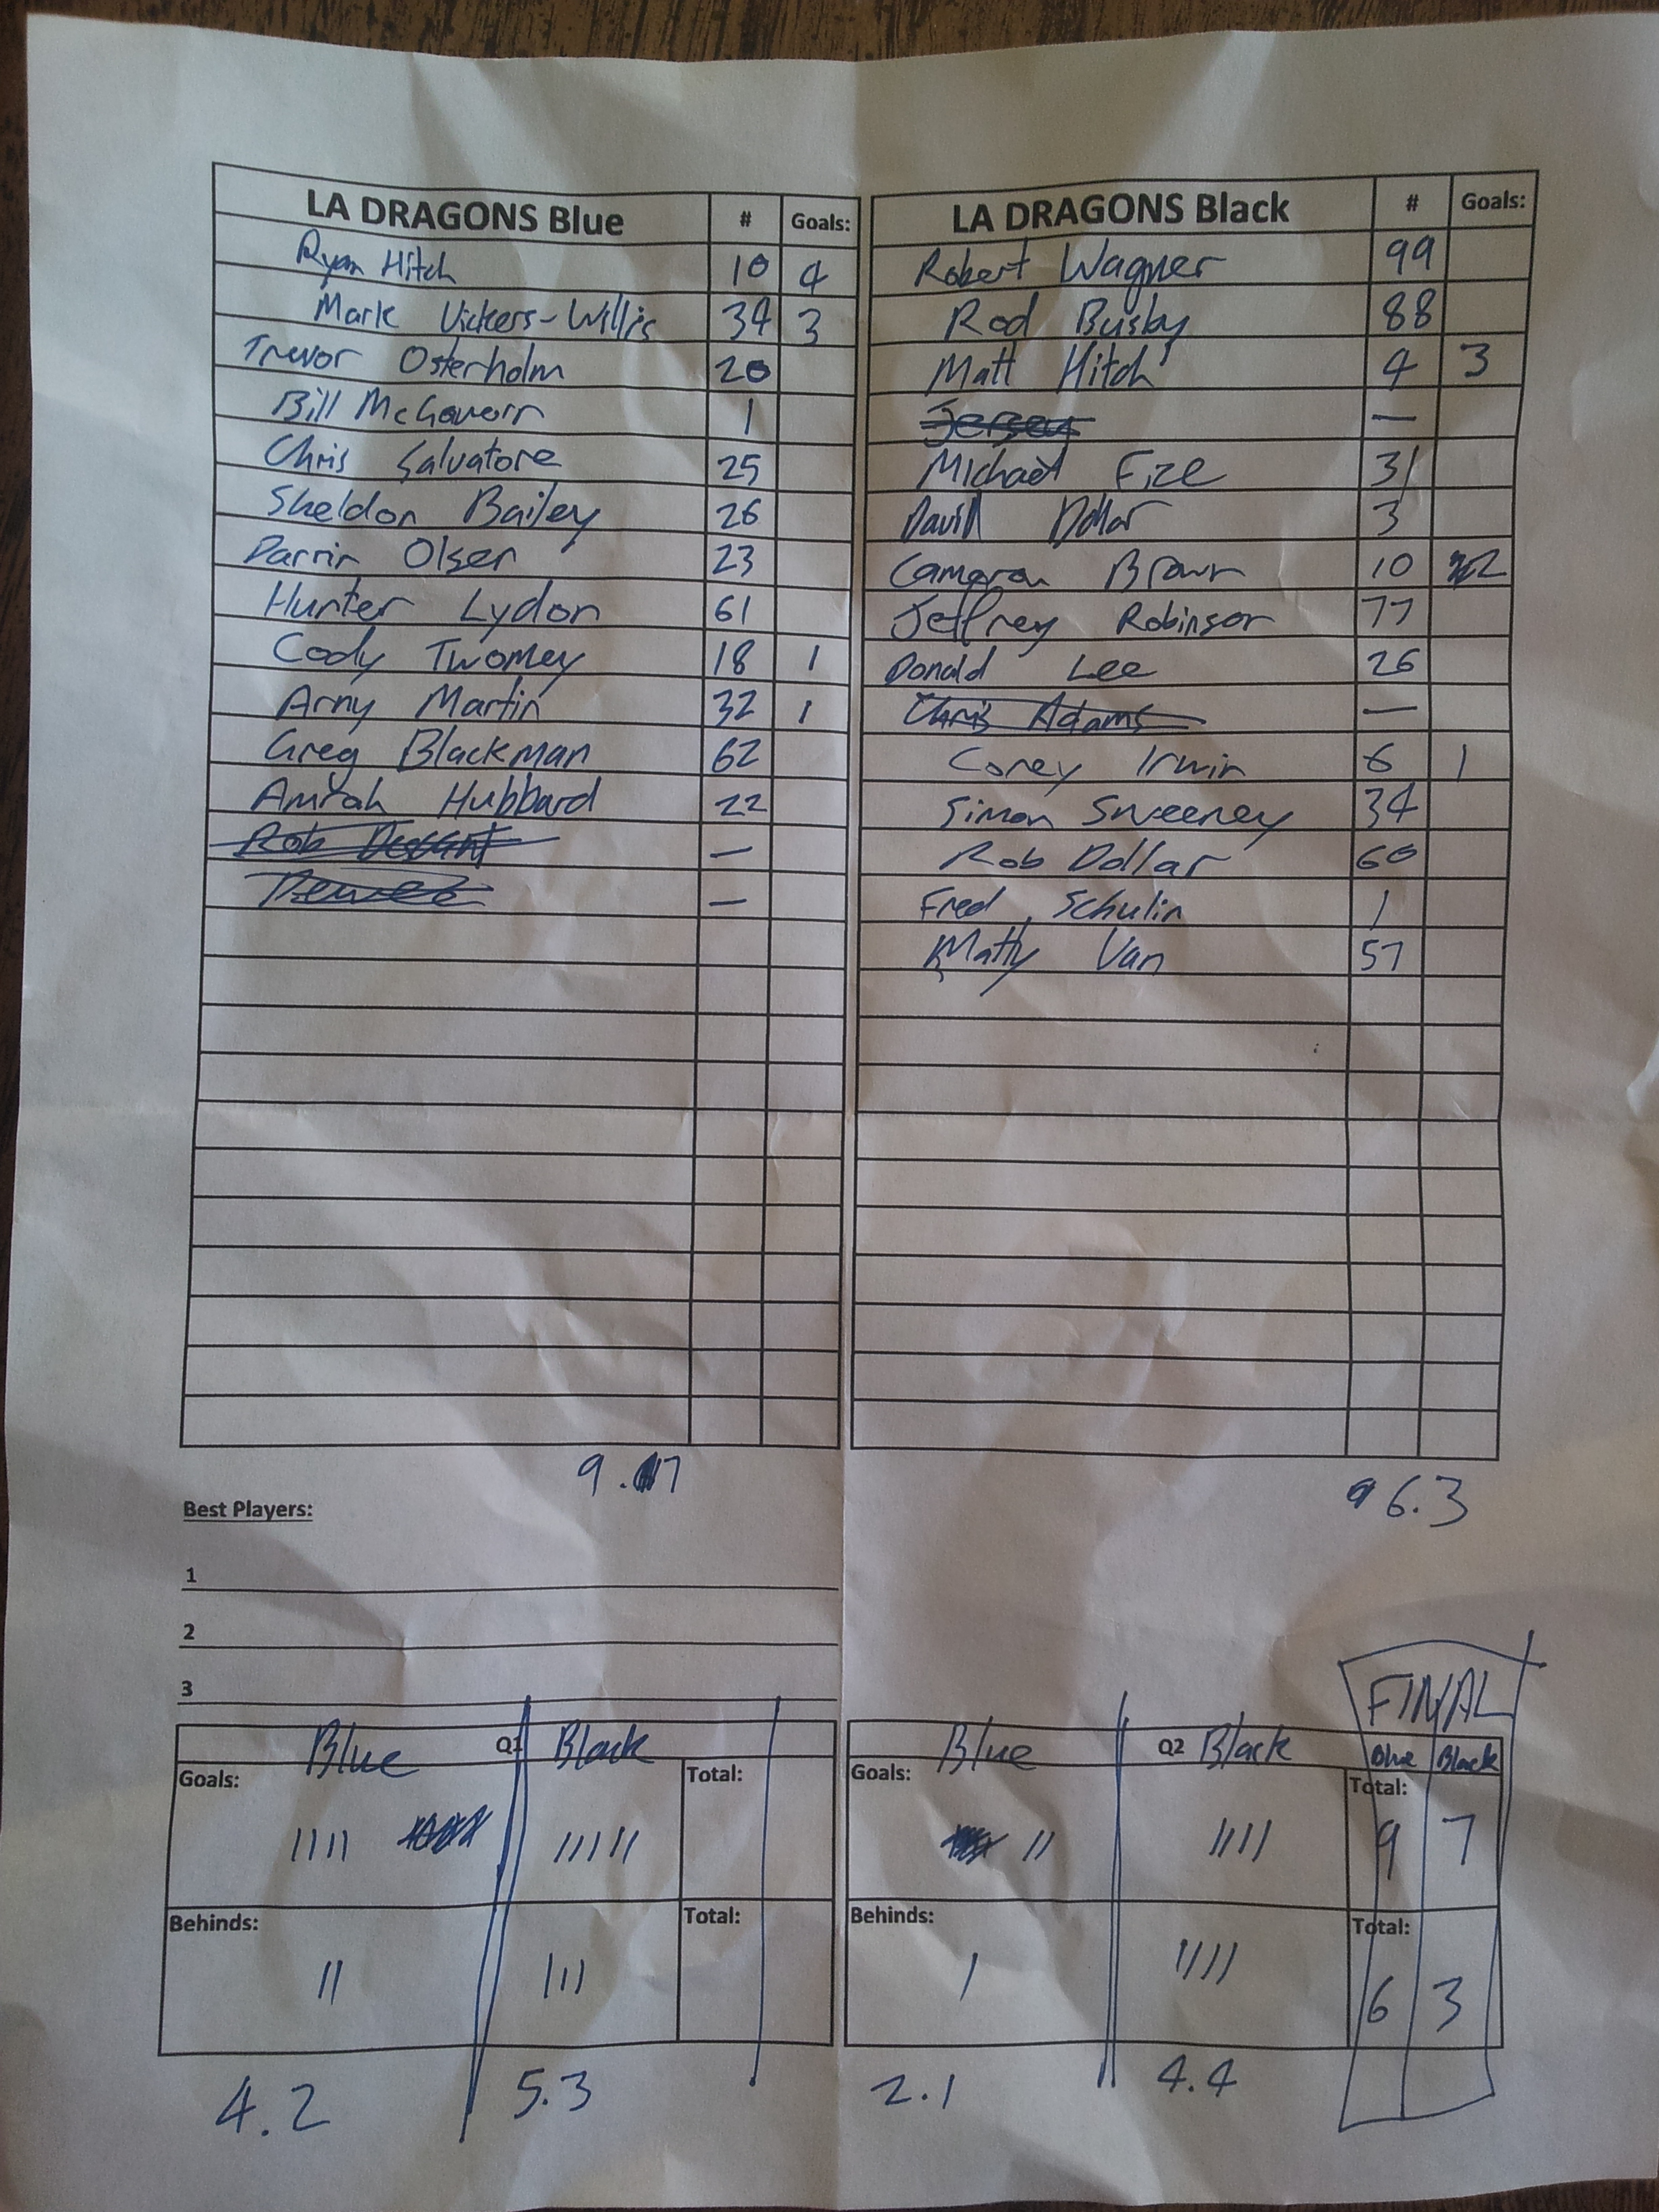 LA DRAGONS Blue # Goals:
Ryan Hitch 10 4
Mark Vickers-Willis 34 3
Trevor Osterholm 20
Bill McGovern 1
Chris Salvatore 25
Sheldon Bailey 26
Darrin Olsen 23
Hunter Lydon 61
Cody Twomey 18 1
Arny Martin 32 1
Greg Blackman 62
Amrah Hubbard 22
Rob —
—
9. 7
LA DRAGONS Black # Goals:
Robert Wagner 99
Rod Busby 88
Matt Hitch 4 3
Jersey —
Michael Fize 31
David Dollar 3
Cameron Brown 10 2
Jeffrey Robinson 77
Donald Lee 26
Chris Adams —
Corey Irwin 6 1
Simon Sweeney 34
Rob Dollar 60
Fred Schulin 1
Matty Van 57
6.3
Best Players:
1
2
3
Blue Q1 Black
Goals: Total:
IIII IIIII
Behinds: Total:
II III
4.2 5.3
FINAL
Blue Q2 Black Blue Black
Goals: Total:
II IIII 9 7
Behinds: Total:
I IIII 6 3
2.1 4.4